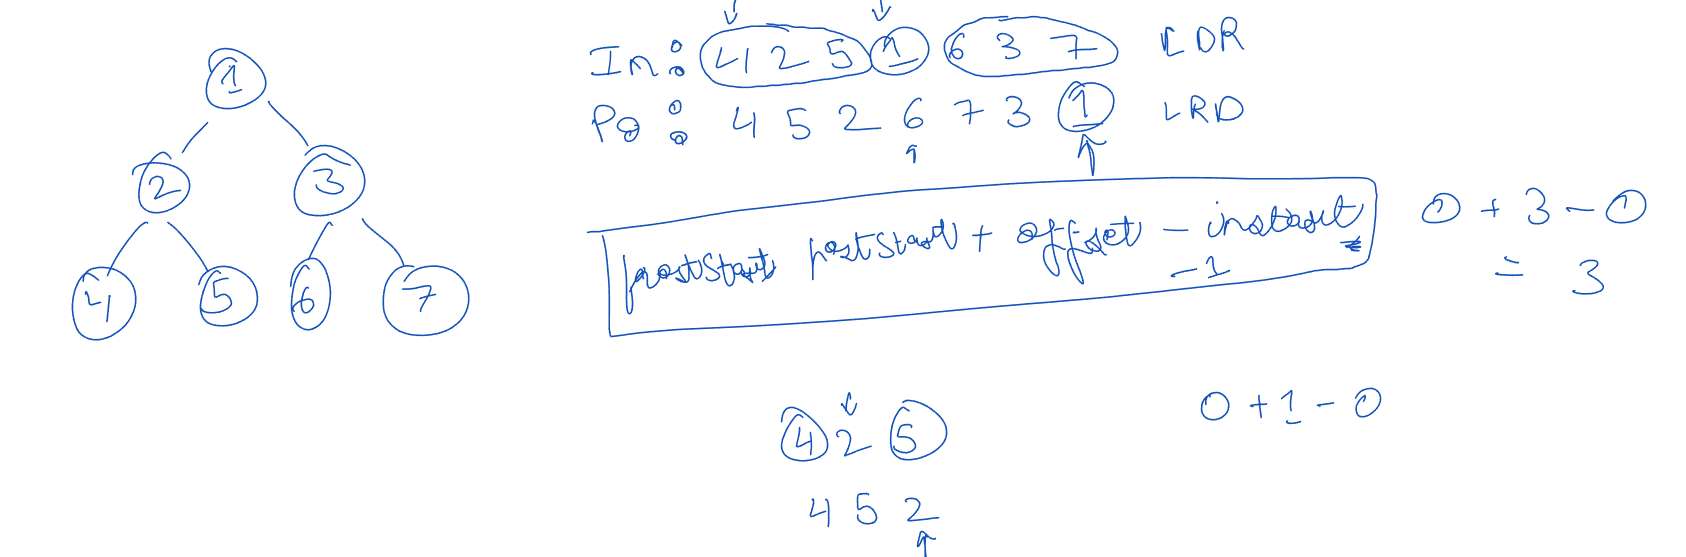 1
2 3
4 5 6 7
In: 4 2 5 1 6 3 7 LDR
Po: 4 5 2 6 7 3 1 LRD
postStart postStart + offset - instart
-1
0 + 3 - 0
= 3
0 + 1 - 0
4 2 5
4 5 2